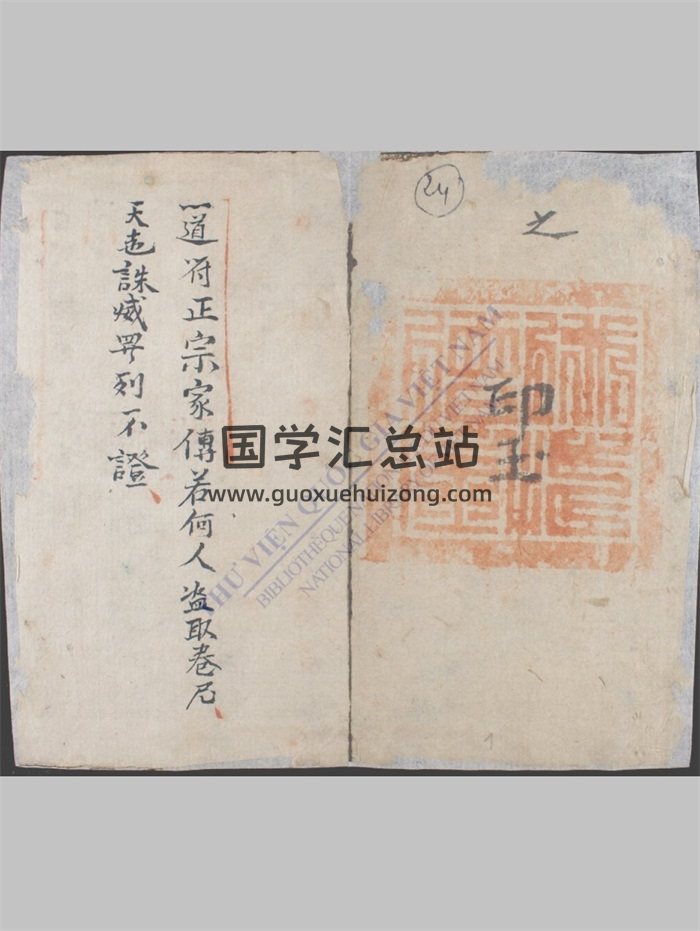 24
之
印玉
道符正宗家傳若何人盗取卷尺
天誅滅界列不證
国学汇总站
www.guoxuehuizong.com
THƯ VIỆN QUỐC GIA VIỆT NAM
BIBLIOTHÈQUE NATIONALE DU VIETNAM
NATIONAL LIBRARY OF VIETNAM
1